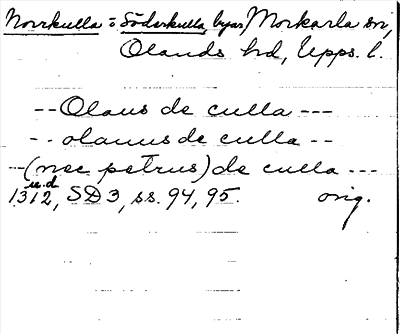 Norrkulla o Söderkulla, byar, Morkarla sn,
Olands hd, Upps. l.
-- Olaus de culla ---
-- olauus de culla --
-- (nec petrus) de culla ---
u.d.
1312, SD 3, ss. 94, 95. orig.